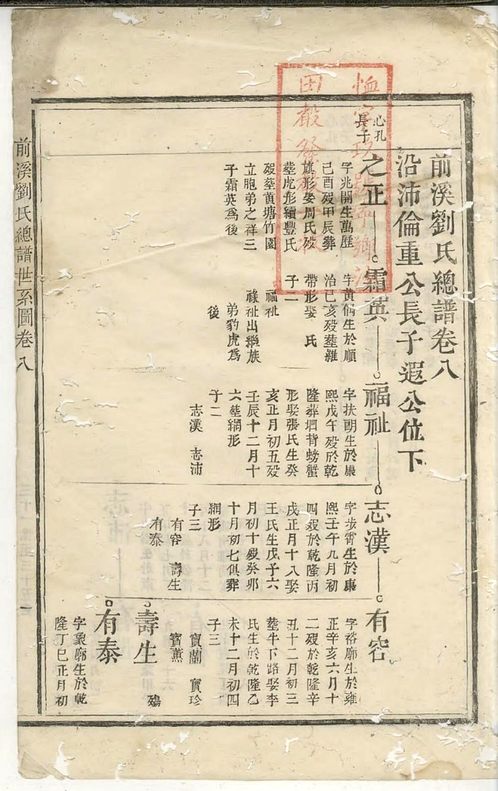 前溪劉氏總譜世系圖卷八
前溪劉氏總譜卷八
沿沛倫重公長子遐公位下
心孔
長子
之正
字兆開生萬歷
己酉歿甲辰葬
旗形娶周氏歿
塟虎形續豐氏
歿塟黃塘竹園
立胞弟之祥三
子霜英爲後
霜英
字黃倘生於順
治己亥歿塟雞
帶形娶 氏
子二
福祉
祿祉出繼族
弟豹虎爲
後
福祉
字扶朗生於康
熙戊午歿於乾
隆葬壻背螃蟹
形娶張氏生癸
亥正月初五歿
壬辰十二月十
六塟獅形
子二
志漢 志沛
志漢
字步霄生於康
熙壬午九月初
四歿於乾隆丙
戌正月十八娶
王氏生戊子六
月初十歿癸卯
十月初七俱葬
獅形
子三
有容 壽生
有泰
有容
字裕廓生於雍
正辛亥六月十
二歿於乾隆辛
丑十二月初三
塟牛下路娶李
氏生於乾隆乙
未十二月初四
子三
寶蘭 寶珍
寶薰
壽生
殤
有泰
字象廓生於乾
隆丁巳正月初